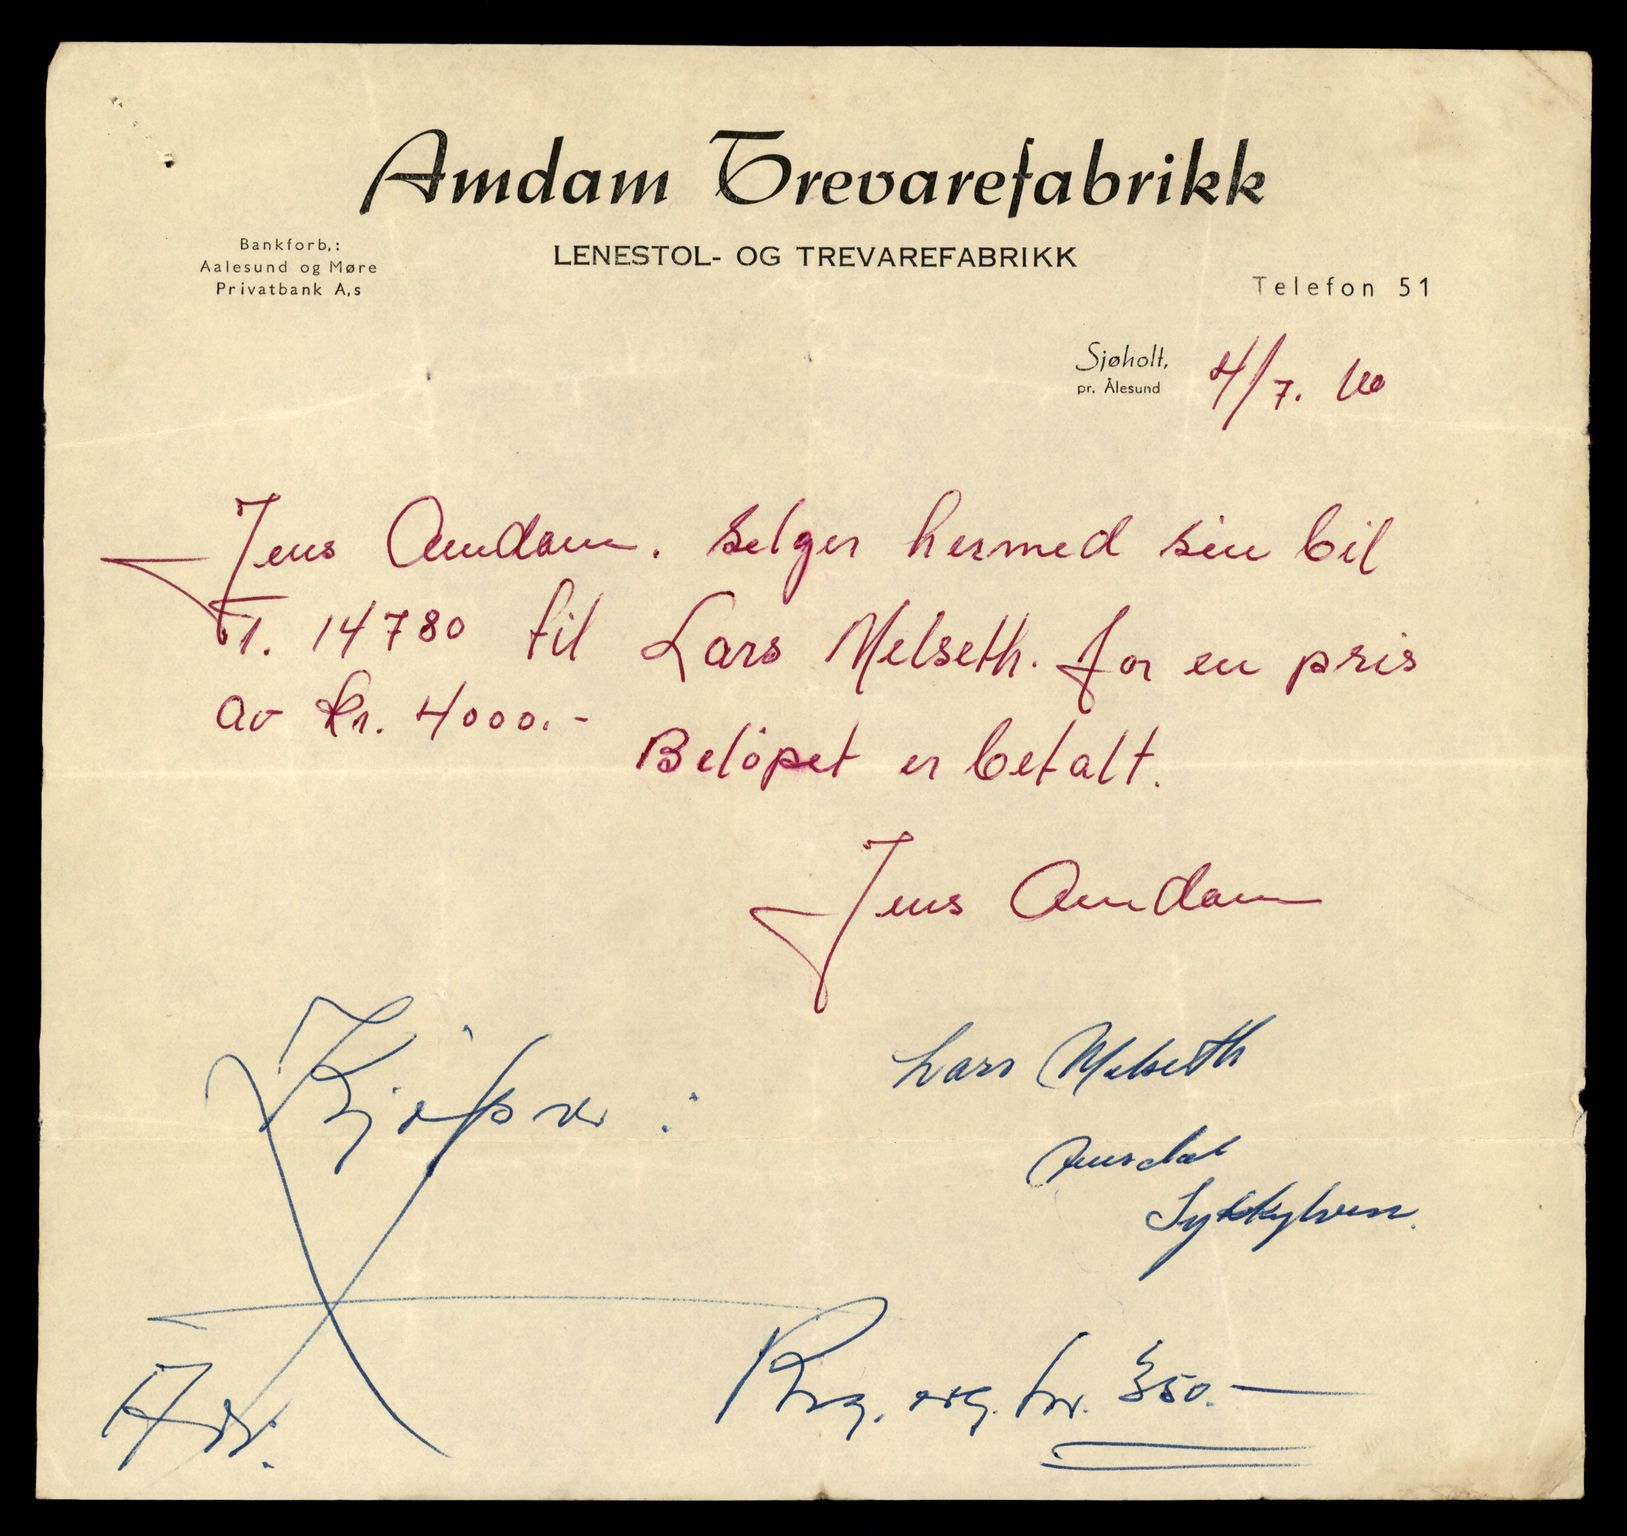 Amdam Trevarefabrikk
Bankforb,:
Aalesund og Møre
Privatbank A,s
LENESTOL- OG TREVAREFABRIKK
Telefon 51
Sjøholt,
pr. Ålesund
4/7. 60
Jens Amdam. selger hermed sin bil
T. 14780 til Lars Melseth. for en pris
av kr. 4000.-
Beløpet er betalt.
Jens Amdam
Kjøper :
Lars Melseth
Aursdal
Sykkylven.
Adr:
Reg. avg. kr. 350.-